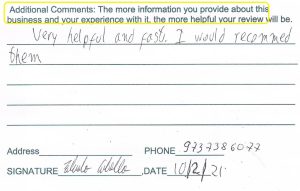 Additional Comments: The more information you provide about this
business and your experience with it, the more helpful your review will be.
Very helpful and fast. I would recommed
them
Address PHONE 9737386077
SIGNATURE DATE 10/2/21